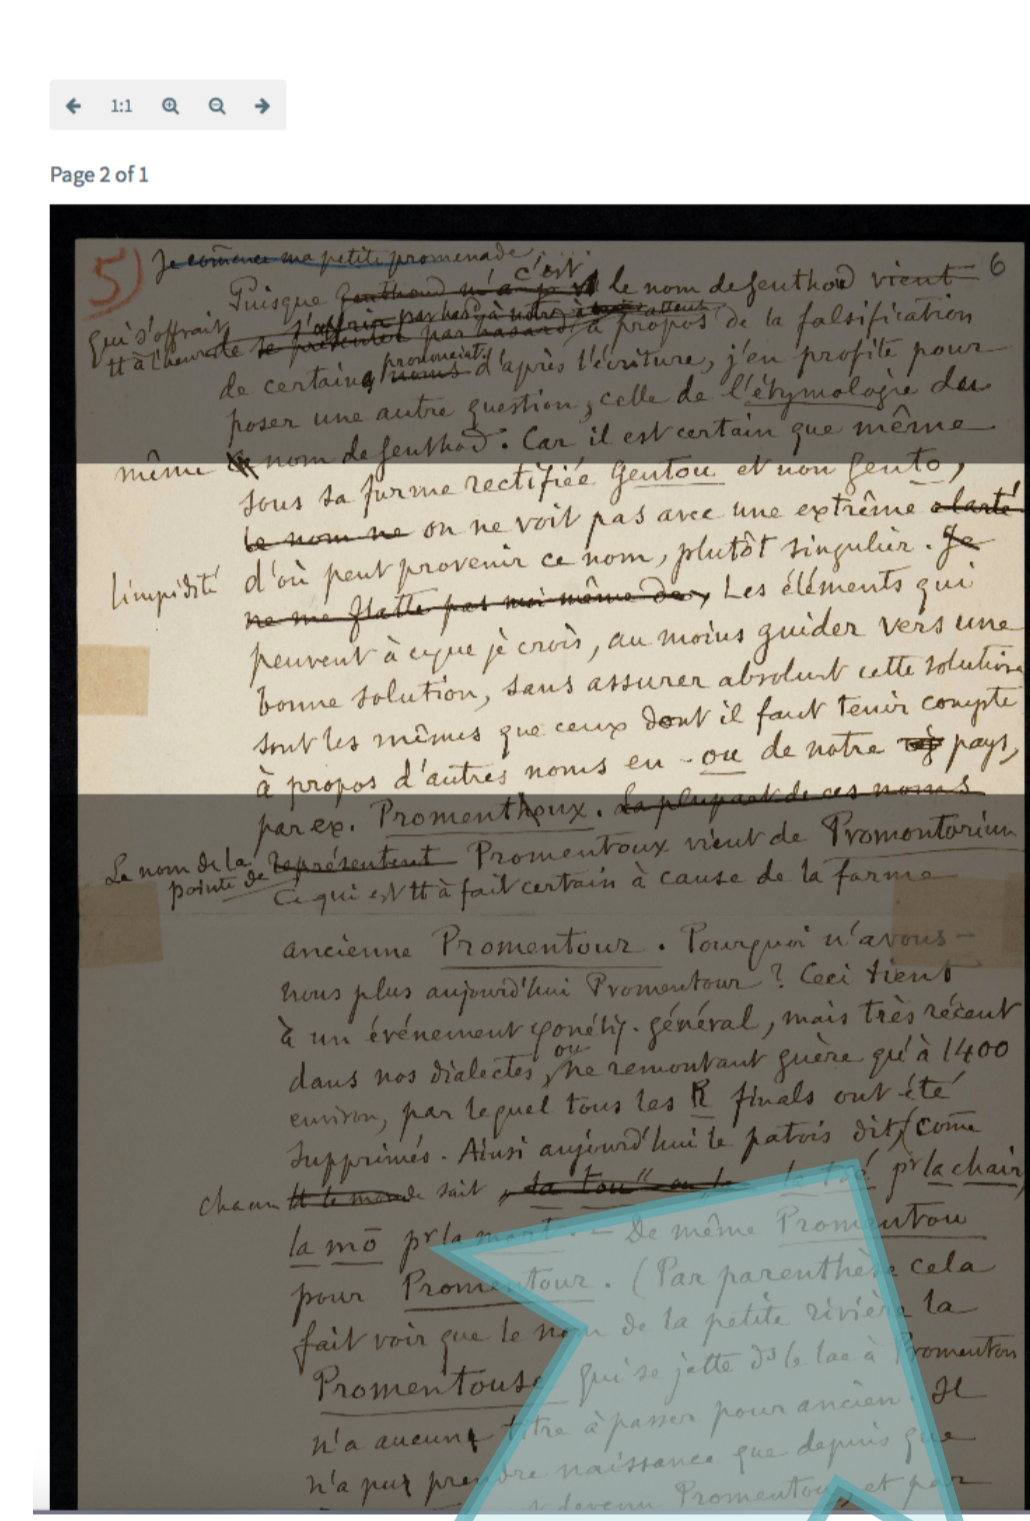 1:1
Page 2 of 1
5) Je comence ma petite promenade
6
c'est
Puisque Genthoud le nom de Genthod vient
qui s'offrait s'offrir par hasard à notre
tt à l'heure se présenter par hasard, à propos de la falsification
prononciat.
de certaines noms d'après l'écriture, j'en profite pour
poser une autre question, celle de l'étymologie du
même nom de Genthod. Car il est certain que même
sous sa forme rectifiée Gentou et non Gento,
le nom ne on ne voit pas avec une extrême clarté
limpidité d'où peut provenir ce nom, plutôt singulier. Je
ne me flatte pas moi-même de, Les éléments qui
peuvent à ce que je crois, au moins guider vers une
bonne solution, sans assurer absolumt cette solution
sont les mêmes que ceux dont il faut tenir compte
à propos d'autres noms en -ou de notre pays,
par ex. Promenthoux. La plupart de ces noms
Le nom de la pointe de représentent Promentoux vient de Promontorium
Ce qui est tt à fait certain à cause de la forme
ancienne Promentour. Pourquoi n'avons-
nous plus aujourd'hui Promentour? Ceci tient
à un événement φonétiq. général, mais très récent
dans nos dialectes, ou ne remontant guère qu'à 1400
environ, par lequel tous les R finals ont été
supprimés. Ainsi aujourd'hui le patois dit, (come
chacun tt le monde sait "la tou" ou la la tsé pr la chair,
la mō pr la mort. — De même Promentou
pour Promentour. (Par parenthèse cela
fait voir que le nom de la petite rivière la
Promentouse qui se jette ds le lac à Promentou
n'a aucun titre à passer pour ancien. Il
n'a pu prendre naissance que depuis que
devenu Promentou, et par